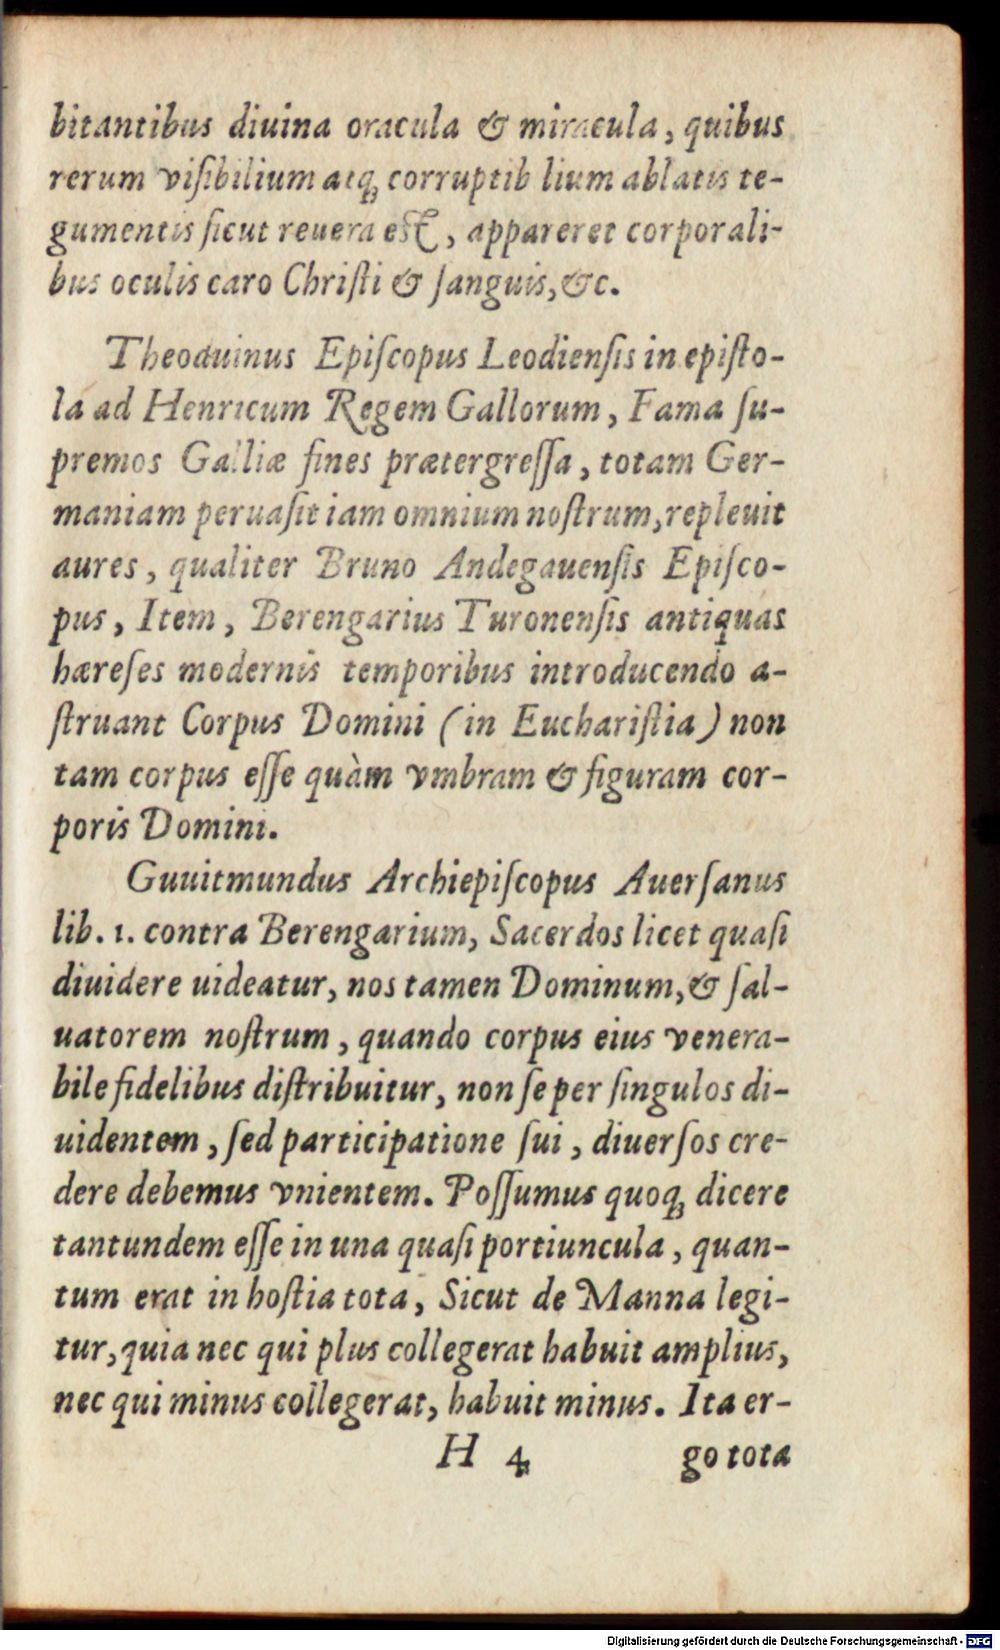 bitantibus diuina oracula & miracula, quibus
rerum viſibilium atq; corruptib lium ablatis te-
gumentis ſicut reuera eſt, appareret corporali-
bus oculis caro Chriſti & ſanguis, &c.
Theoduinus Epiſcopus Leodienſis in epiſto-
la ad Henricum Regem Gallorum, Fama ſu-
premos Galliæ fines prætergreſſa, totam Ger-
maniam peruaſit iam omnium noſtrum, repleuit
aures, qualiter Bruno Andegauenſis Epiſco-
pus, Item, Berengarius Turonenſis antiquas
hæreſes modernis temporibus introducendo a-
ſtruant Corpus Domini (in Euchariſtia) non
tam corpus eſſe quàm vmbram & figuram cor-
poris Domini.
Guuitmundus Archiepiſcopus Auerſanus
lib. 1. contra Berengarium, Sacerdos licet quaſi
diuidere uideatur, nos tamen Dominum, & ſal-
uatorem noſtrum, quando corpus eius venera-
bile fidelibus diſtribuitur, non ſe per ſingulos di-
uidentem, ſed participatione ſui, diuerſos cre-
dere debemus vnientem. Poſſumus quoq; dicere
tantundem eſſe in una quaſi portiuncula, quan-
tum erat in hoſtia tota, Sicut de Manna legi-
tur, quia nec qui plus collegerat habuit amplius,
nec qui minus collegerat, habuit minus. Ita er-
H 4 go tota
Digitalisierung gefördert durch die Deutsche Forschungsgemeinschaft - DFG